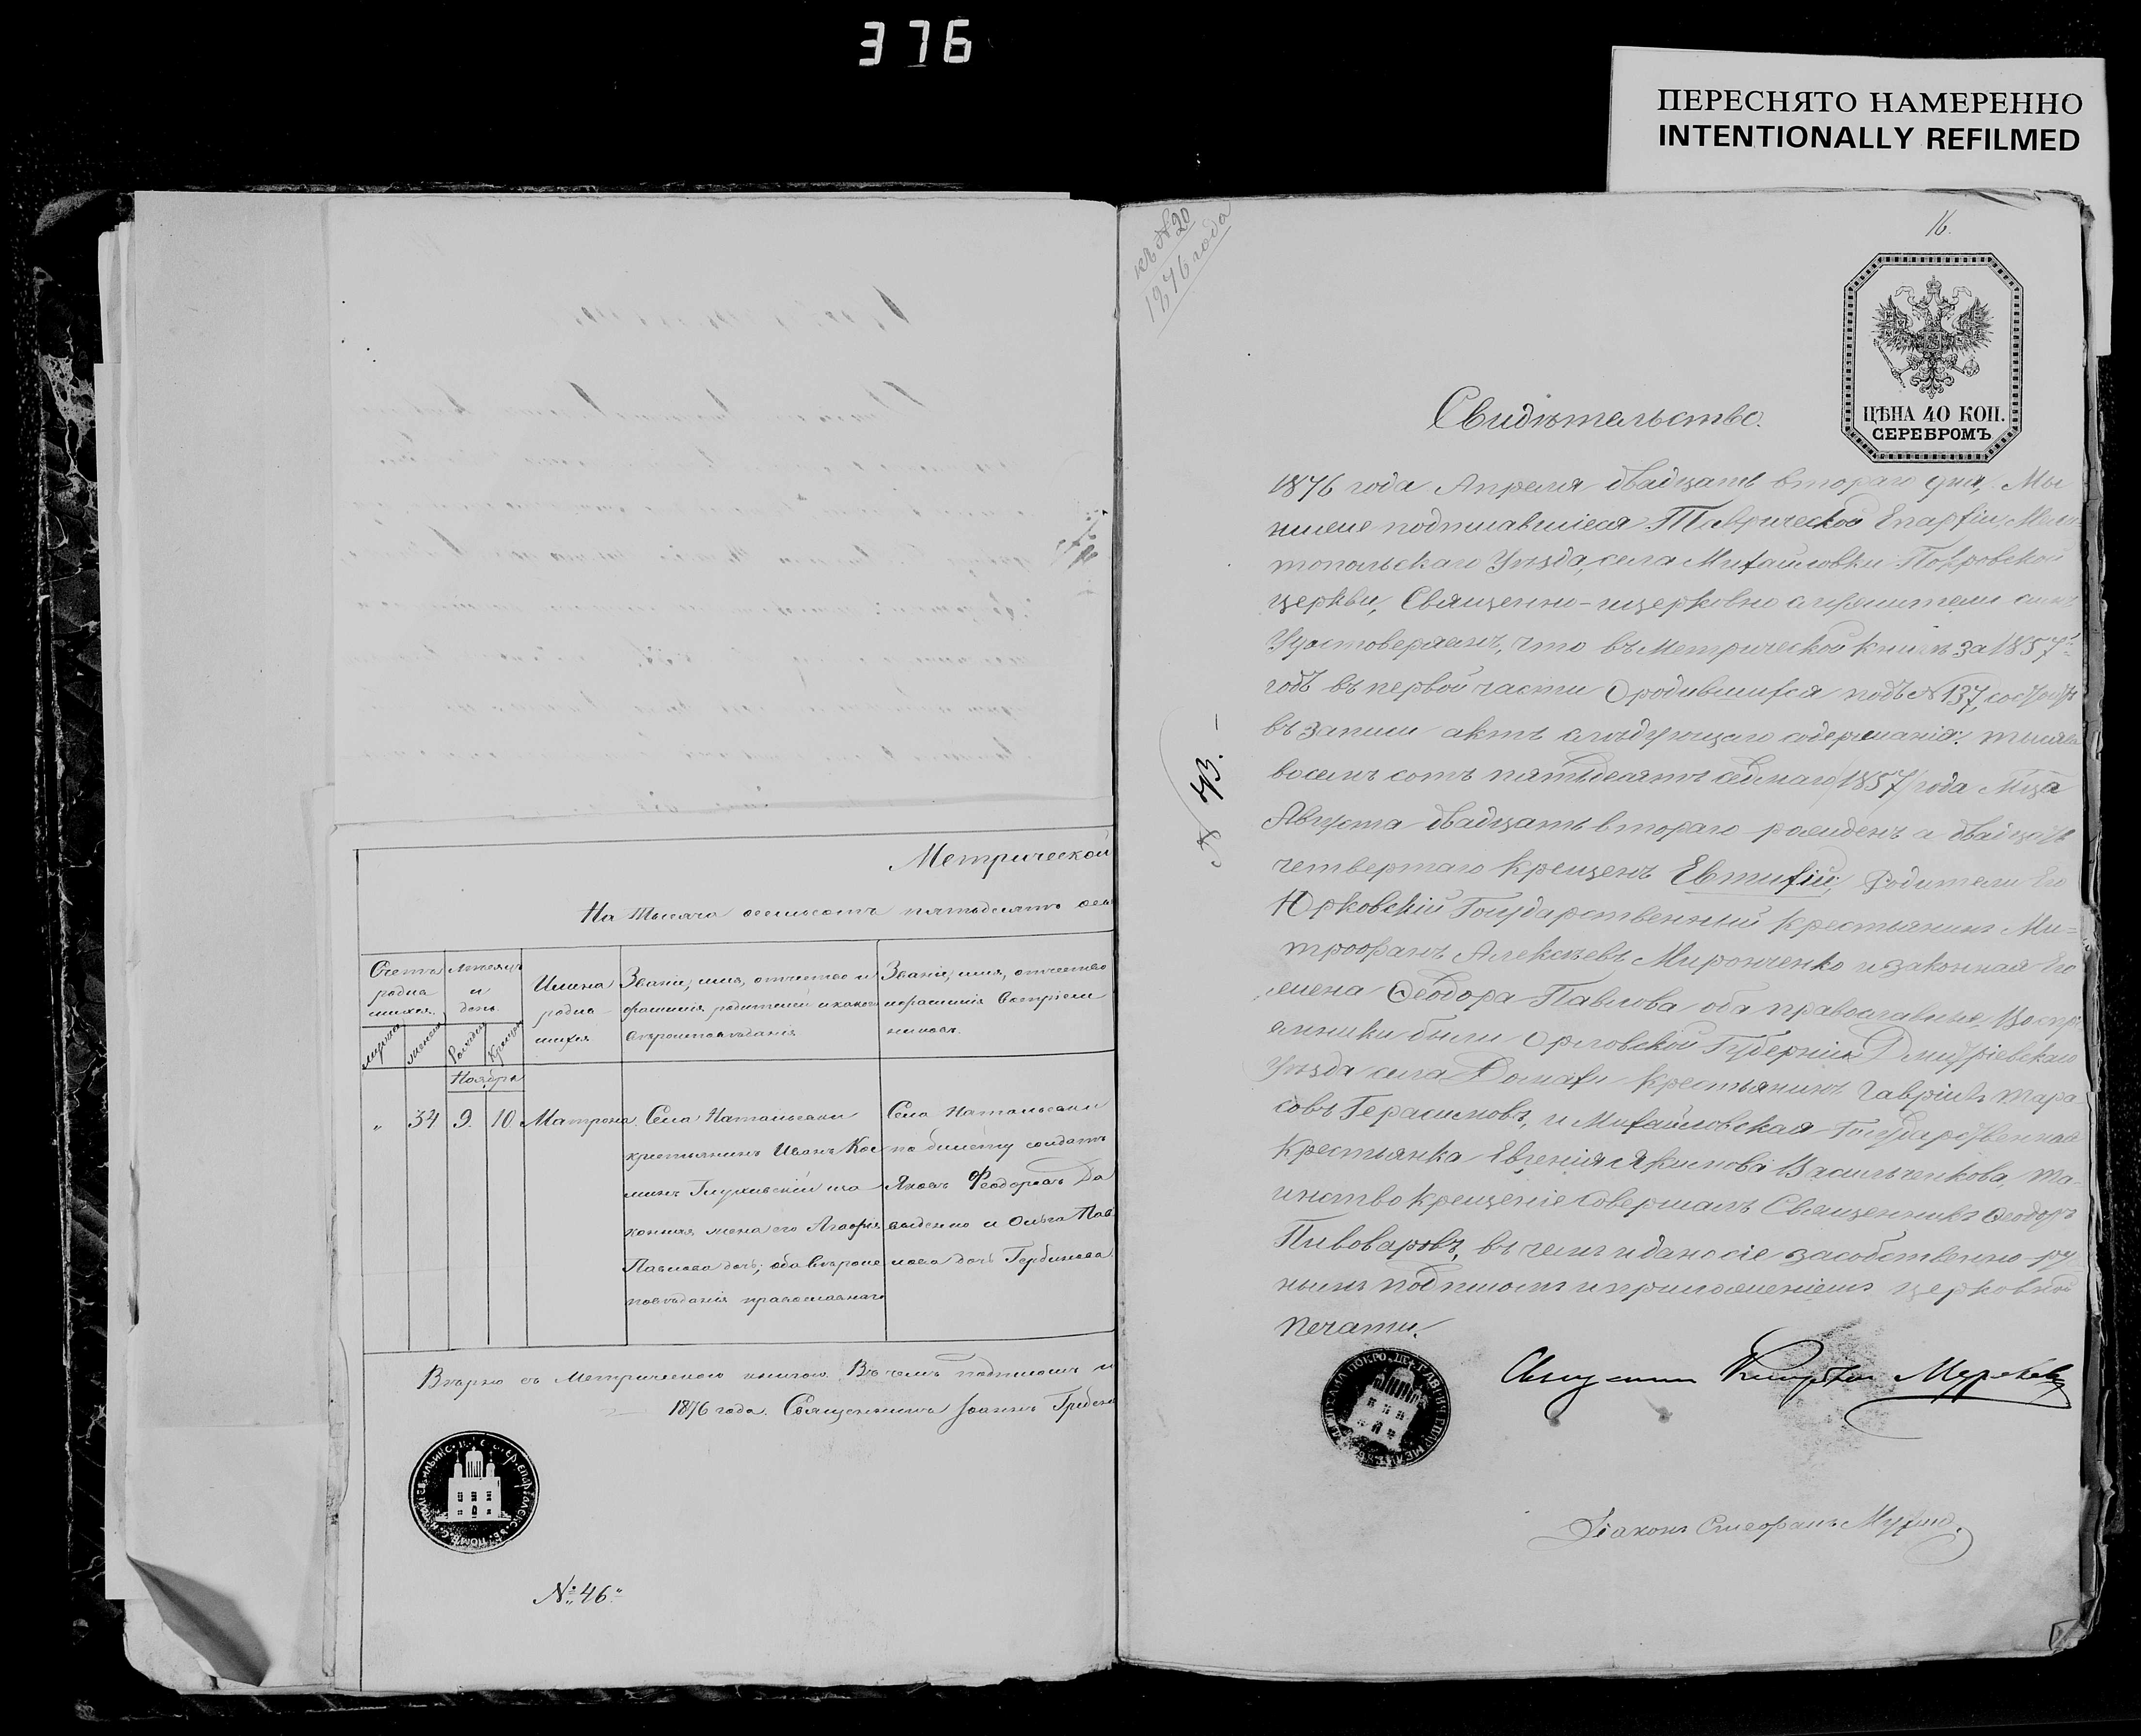 376
ПЕРЕСНЯТО НАМЕРЕННО
INTENTIONALLY REFILMED
Метрической
На тысяча восемьсотъ пятьдесятъ
Счетъ родившихся.
мужска женска
Мѣсяцъ и день.
Рожден Крещен
Имена родившихся
Званіе, имя, отчество и фамилія родителей и какого вѣроисповѣданія
Званіе, имя, отчество и фамилія воспріемниковъ.
Ноября
„ 34 9. 10 Матрона.
Села Натальевки
крестьянинъ Иванъ Кос
минъ Глуховскій и за
конная жена его Агафія
Павлова дочь; оба вѣроис
повѣданія православнаго
Села Натальевки
по билету солдатъ
Яковъ Феодоровъ Да
выденко и Ольга Пав
лова дочь Горбикова
Вѣрно съ Метрическою книгою. Въ чемъ подписомъ и
1876 года. Священникъ Іоаннъ
№ 46
къ № 20
1876 года
16.
ЦѢНА 40 КОП.
СЕРЕБРОМЪ
№ 43.
Свидѣтельство.
1876 года Апреля двадцать втораго дня, Мы
ниже подписавшіеся Таврической Епархіи, Мели
топольскаго Уѣзда, села Михайловки Покровской
церкви, Священно-ицерковно служители симъ
Удостоверяемъ, что въ Метрической книгѣ за 1857й
годъ въ первой части Ородившихся подъ № 137,
въ записи актъ слѣдующаго содержанія: тысяча
восемь сотъ пятьдесятъ седмаго /1857/ года Мца
Августа двадцать втораго рожденъ а двадцать
четвертаго крещенъ Евтихій; Родители Его
Юрковскій Государственный крестьянинъ Ми=
трофанъ Алексѣевъ Миронченко и законная Его
жена Феодора Павлова оба православные, Воспрі
емники были Орловской Губерніи Дмитріевскаго
Уѣзда села крестьянинъ Гавріилъ Тара
совъ Герасимовъ, и Михайловская Государственная
крестьянка Евгенія Якимова Васильченкова та-
инство крещеніе совершалъ Священникъ Феодоръ
Пивоваровъ, въ чемъ и дано сіе за собственно-ру
чнымъ подписомъ и приложеніемъ церковной
печати.
Діаконъ Стефанъ